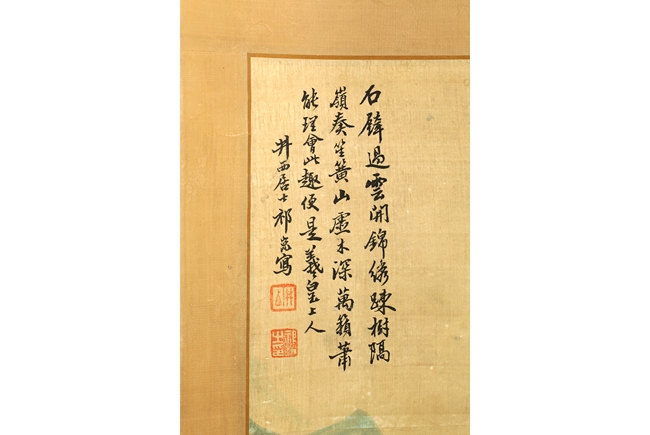 石壁過雲開錦繡疎樹隔
嶺奏笙簧山虛木深萬籟蕭
能理會此趣便是羲皇上人
井西居士祁崑寫